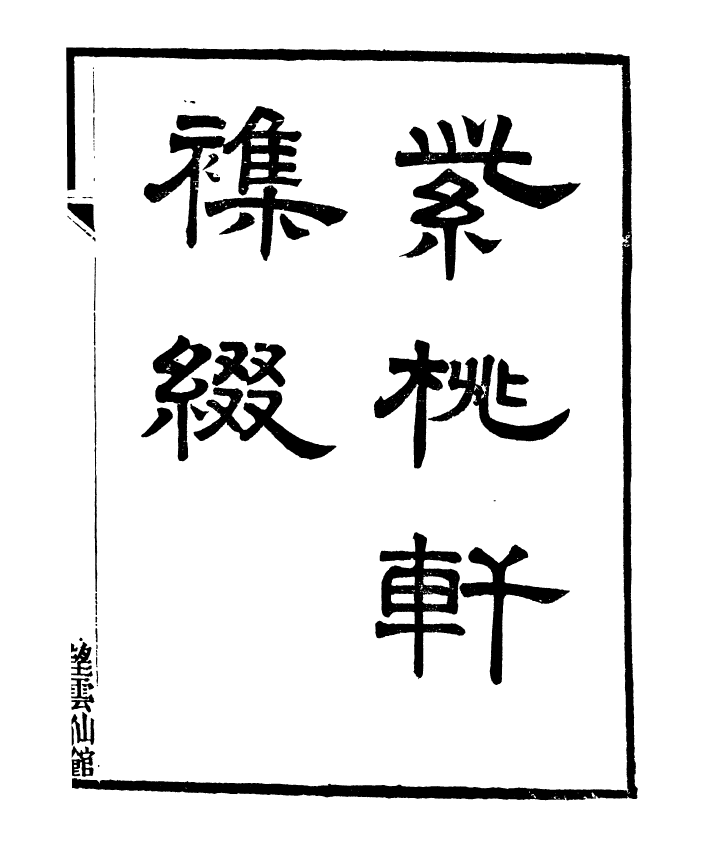 紫桃軒
襍綴
望雲仙館